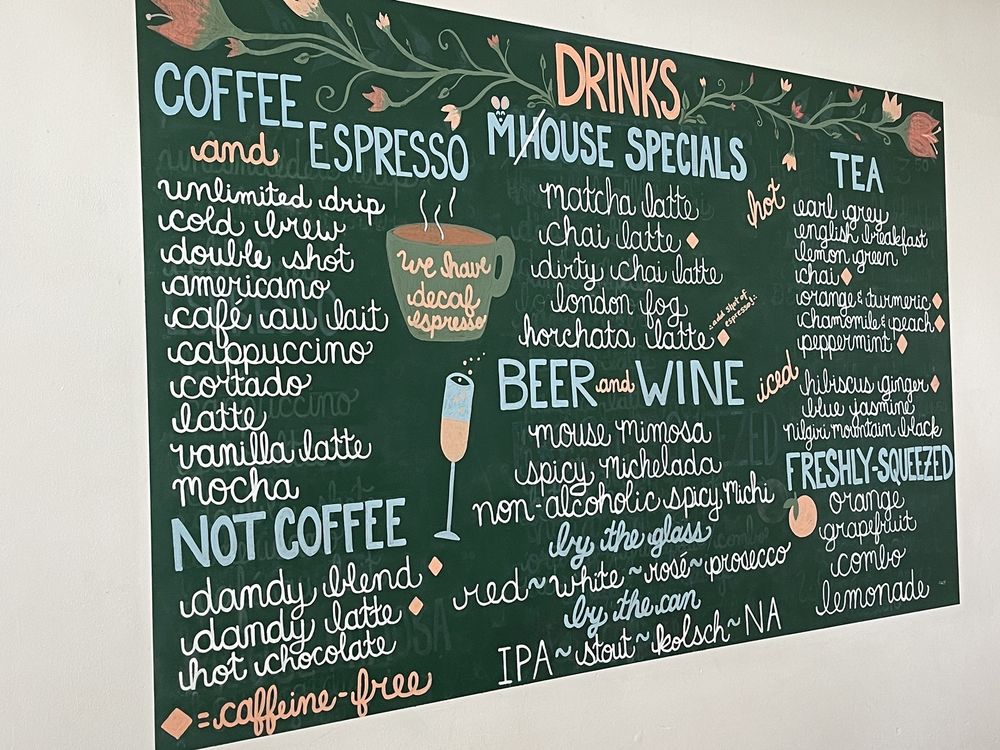 DRINKS
COFFEE
and ESPRESSO
unlimited drip
cold brew
double shot
americano
café au lait
cappuccino
cortado
latte
vanilla latte
mocha
we have
decaf
espresso
NOT COFFEE
dandy blend
dandy latte
hot chocolate
= caffeine-free
MHOUSE SPECIALS
matcha latte
chai latte
dirty chai latte
london fog
horchata latte
add shot of
espresso!
BEER and WINE
mouse mimosa
spicy michelada
non-alcoholic spicy michi
by the glass
red ~ white ~ rosé ~ prosecco
by the can
IPA ~ stout ~ kolsch ~ NA
TEA
hot
earl grey
english breakfast
lemon green
chai
orange & turmeric
chamomile & peach
peppermint
iced
hibiscus ginger
blue jasmine
nilgiri mountain black
FRESHLY-SQUEEZED
orange
grapefruit
combo
lemonade